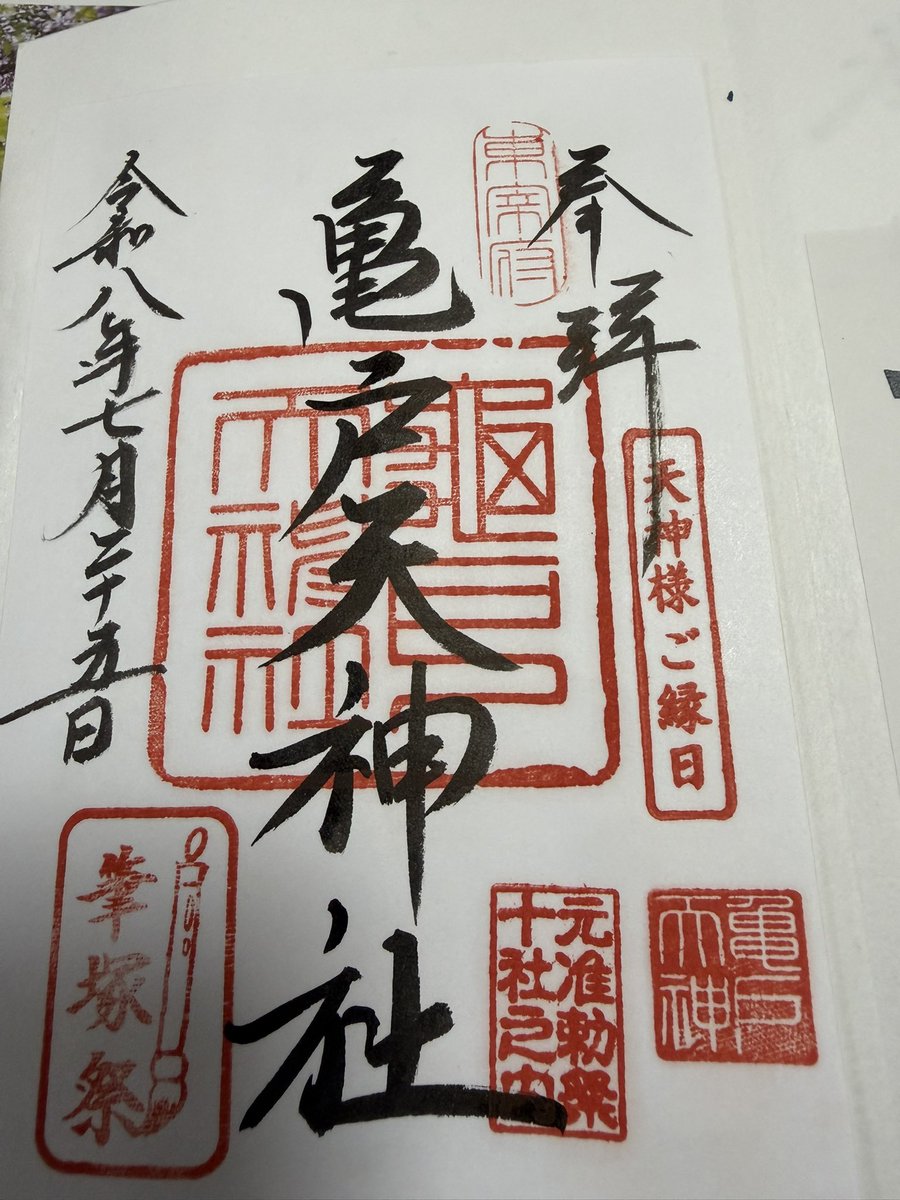 奉拝
東宰府
天神様ご縁日
亀戸
天神
元准勅祭
十社之内
亀戸天神社
令和八年七月二十五日
筆塚祭